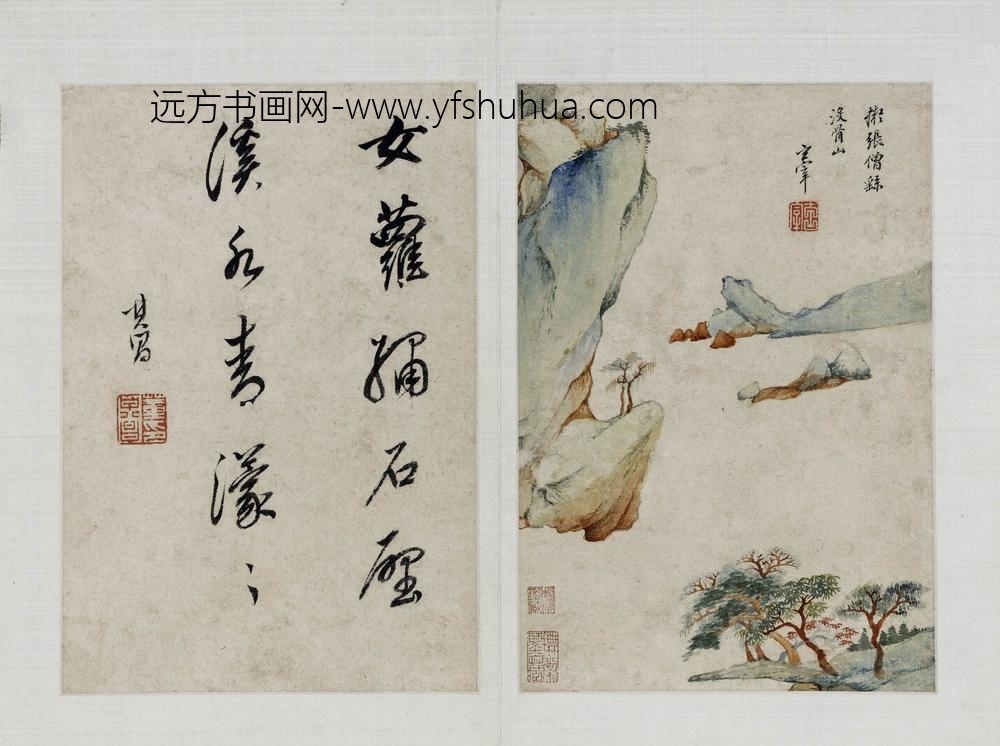 远方书画网-www.yfshuhua.com
擬張僧繇
沒骨山
玄宰
女蘿繡石壁
溪水青濛〻
其昌